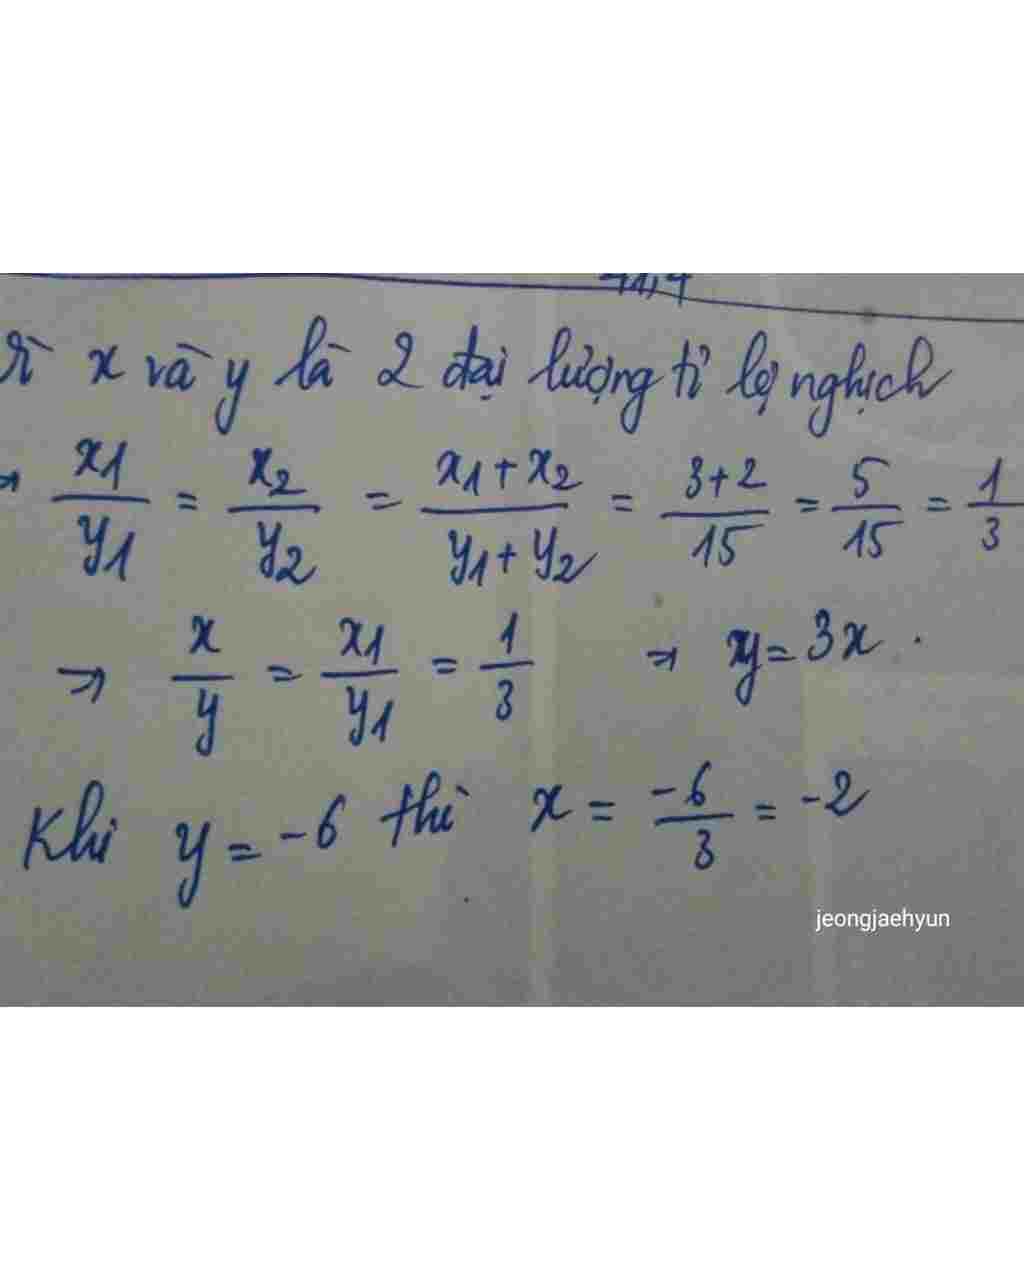 x và y là 2 đại lượng tỉ lệ nghịch
→ x1/y1 = x2/y2 = (x1 + x2)/(y1 + y2) = (3+2)/15 = 5/15 = 1/3
→ x/y = x1/y1 = 1/3 → y = 3x .
Khi y = -6 thì x = -6/3 = -2
jeongjaehyun